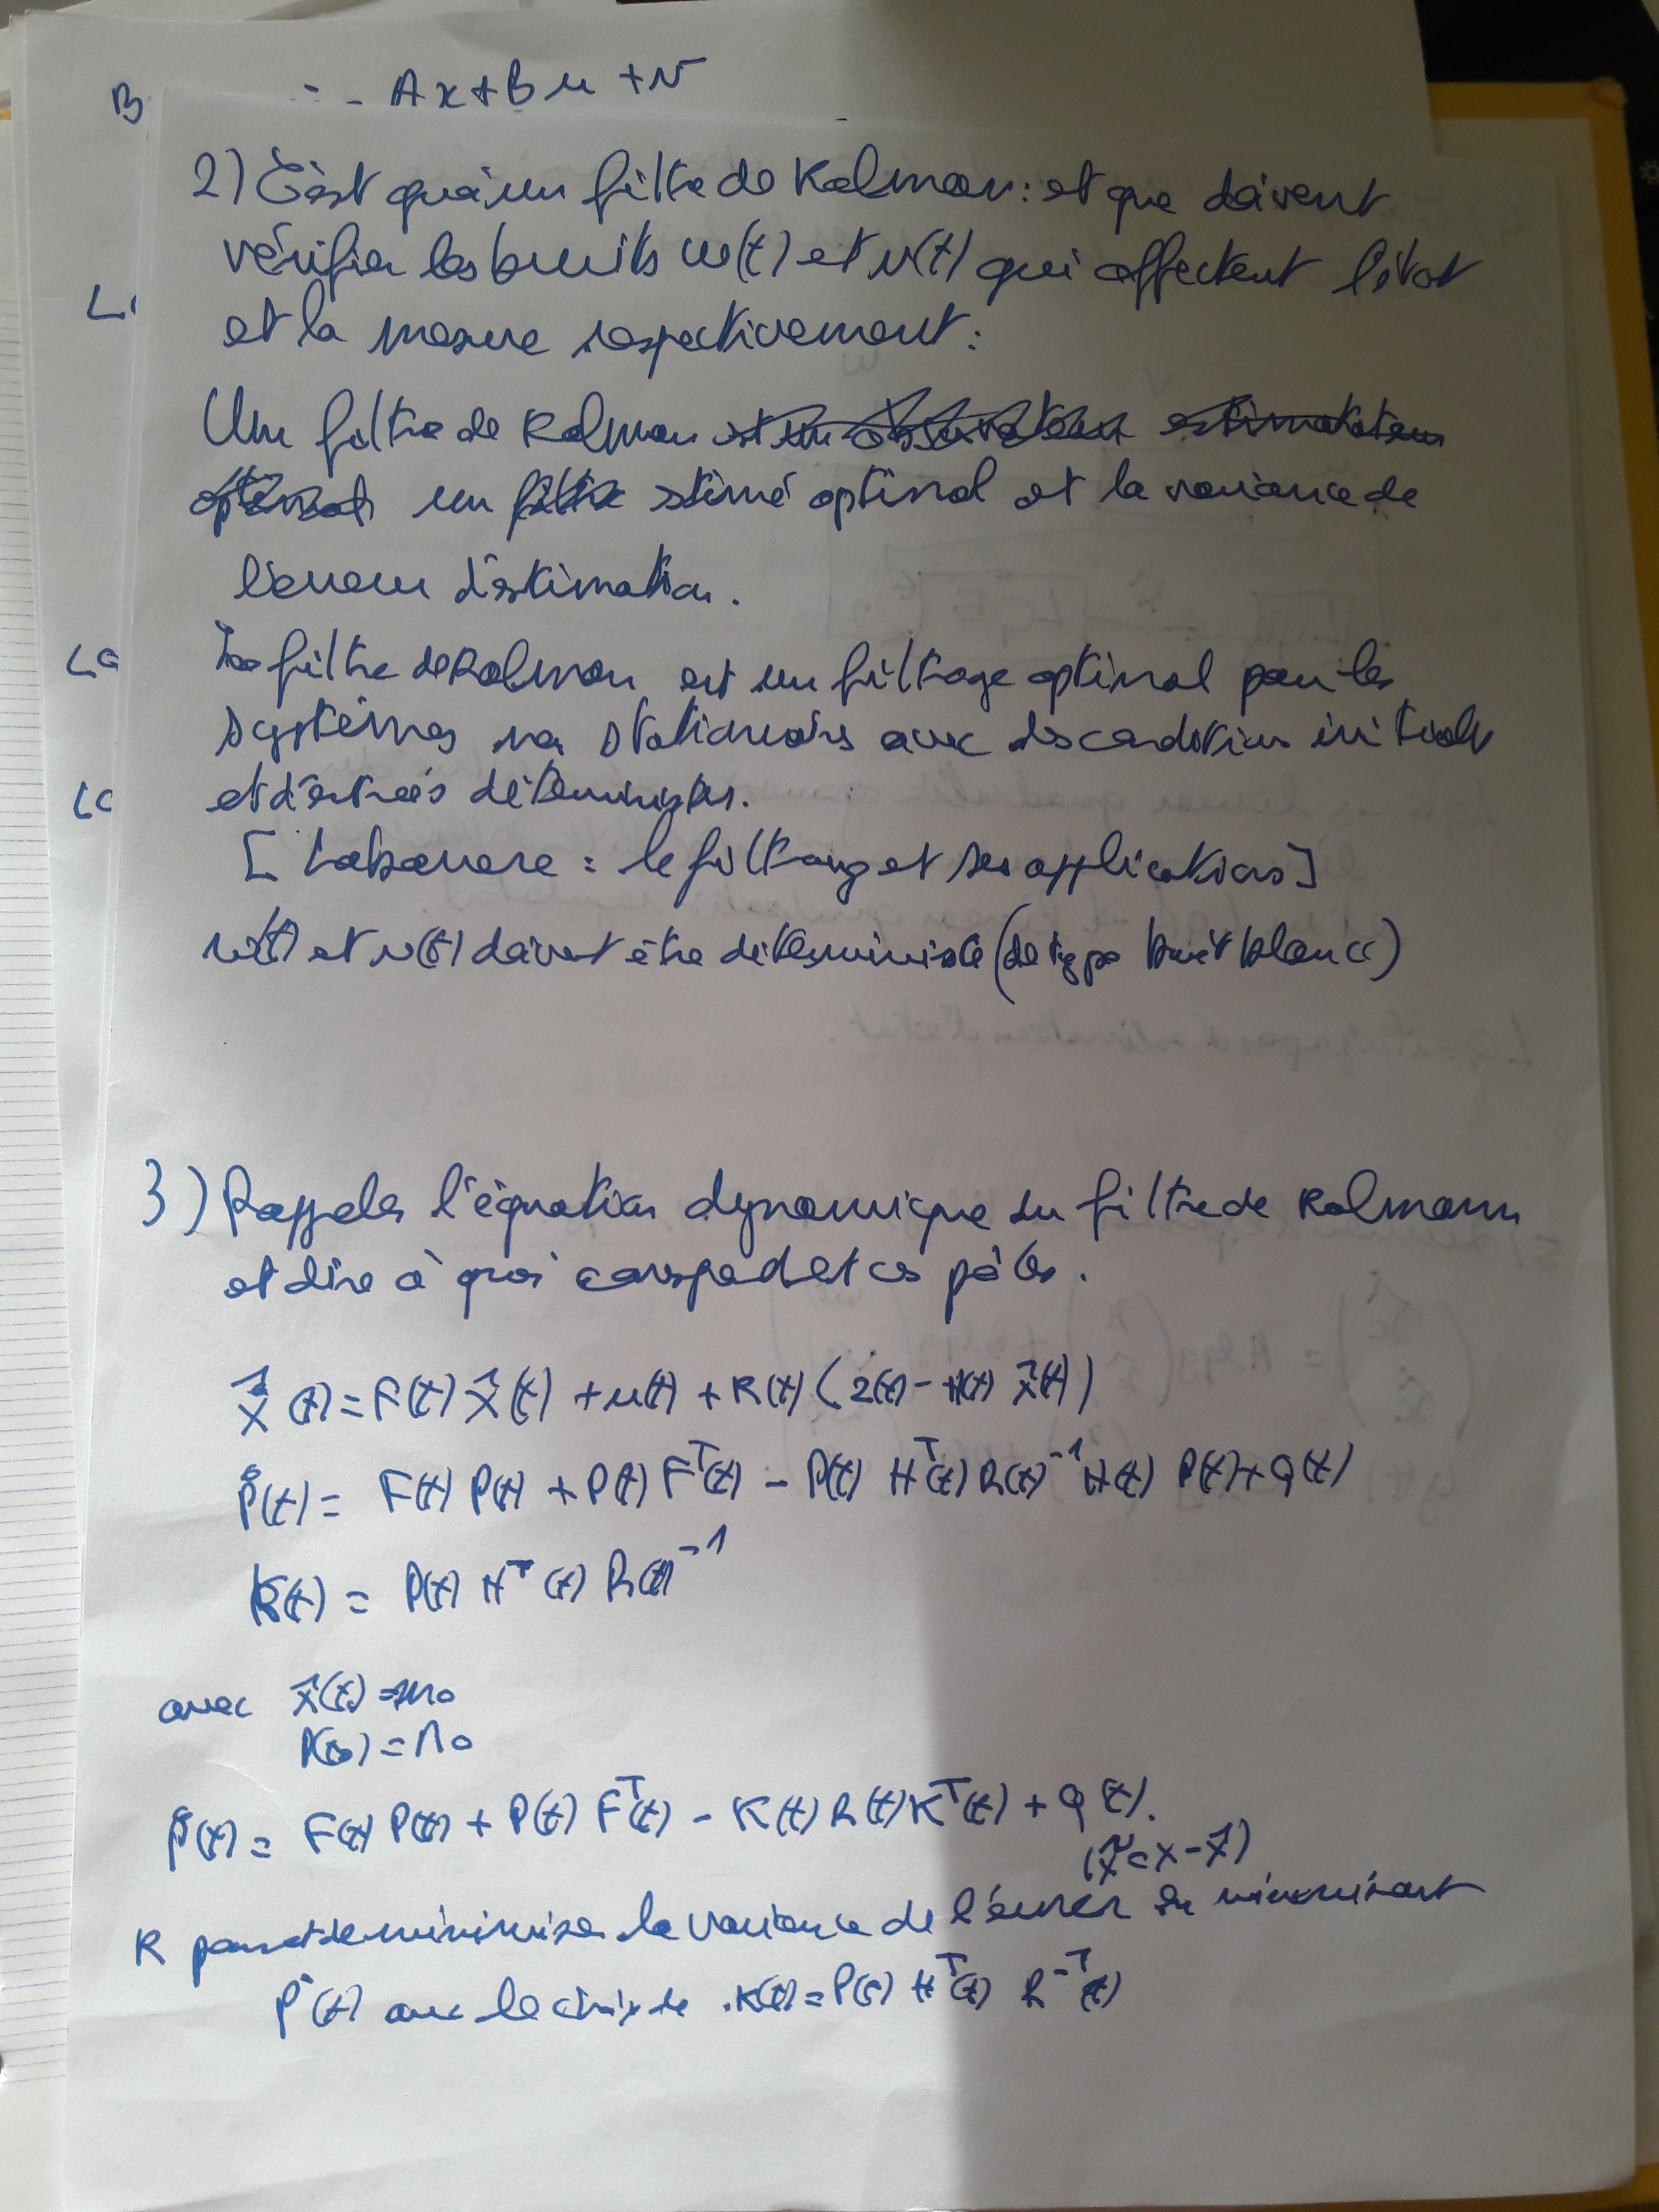 B
Ax+Bu+v
2) C'est quoi un filtre de Kalman : et que doivent
vérifier les bruits w(t) et v(t) qui affectent l'état
et la mesure respectivement :
Un filtre de Kalman est un observateur estimatateur
optimal un filtre estimé optimal et la variance de
l'erreur d'estimation.
Le filtre de Kalman est un filtrage optimal pour les
systèmes non stationnaires avec des conditions initiales
et d'entrées déterministes.
[ Labarrere : le filtrage et ses applications ]
w(t) et v(t) doivent être déterministe (de type bruit blanc)
3) Rappeler l'équation dynamique du filtre de Kalmann
et dire à quoi correspondent ces pôles.
X̂̇(t) = F(t) X̂(t) + u(t) + K(t) (Z(t) - H(t) X̂(t))
Ṗ(t) = F(t) P(t) + P(t) Fᵀ(t) - P(t) Hᵀ(t) R(t)⁻¹ H(t) P(t) + Q(t)
K(t) = P(t) Hᵀ(t) R(t)⁻¹
avec X̂(t₀) = m₀
P(t₀) = Π₀
Ṗ(t) = F(t) P(t) + P(t) Fᵀ(t) - K(t) R(t) Kᵀ(t) + Q(t).
(X̃ = X - X̂)
K permet de minimiser la variance de l'erreur en minimisant
Ṗ(t) avec le choix de K(t) = P(t) Hᵀ(t) R⁻ᵀ(t)